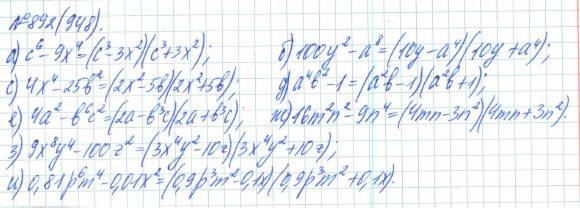 №892(948).
а) c⁶-9x⁴=(c³-3x²)(c³+3x²); б) 100y²-a⁸=(10y-a⁴)(10y+a⁴);
с) 4x⁴-25b²=(2x²-5b)(2x²+5b); д) a⁴b²-1=(a²b-1)(a²b+1);
е) 4a²-b⁶c²=(2a-b³c)(2a+b³c); ж) 16m²n²-9n⁴=(4mn-3n²)(4mn+3n²).
з) 9x⁸y⁴-100z²=(3x⁴y²-10z)(3x⁴y²+10z);
и) 0,81p⁶m⁴-0,01x²=(0,9p³m²-0,1x)(0,9p³m²+0,1x).